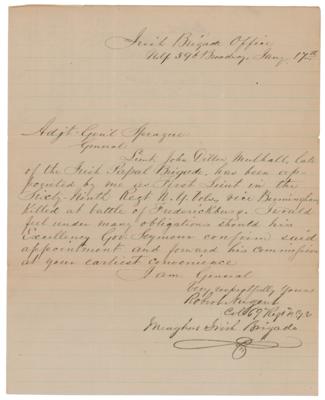 Irish Brigade Office
No 596 Broadway, Jany. 17th
Adjt. Gen'l Sprague
General.
Lieut. John Dillon Mulhall, late
of the Irish Papal Brigade, has been ap-
pointed by me as First Lieut in the
Sixty-Ninth Regt N.Y. Vols, vice Birmingham
killed at battle of Fredericksburg. I would
feel under many obligations should his
Excellency Gov. Seymour confirm said
appointment and forward his commission
at your earliest convenience
I am General
Very respectfully Yours
Robert Nugent
Col. 69 Regt N.Y.V.
Meagher Irish Brigade